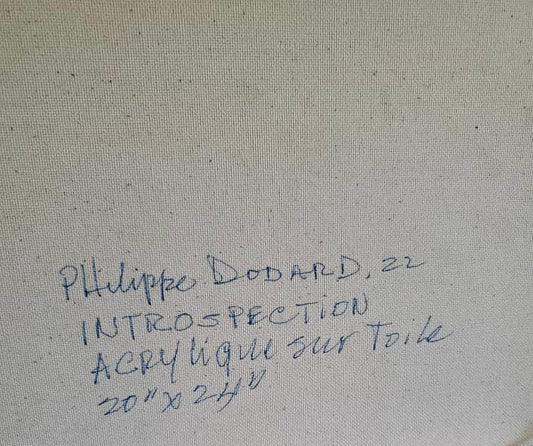 PHilippe DODARD, 22
INTROSPECTiON
ACRYlique sur Toile
20" x 24"